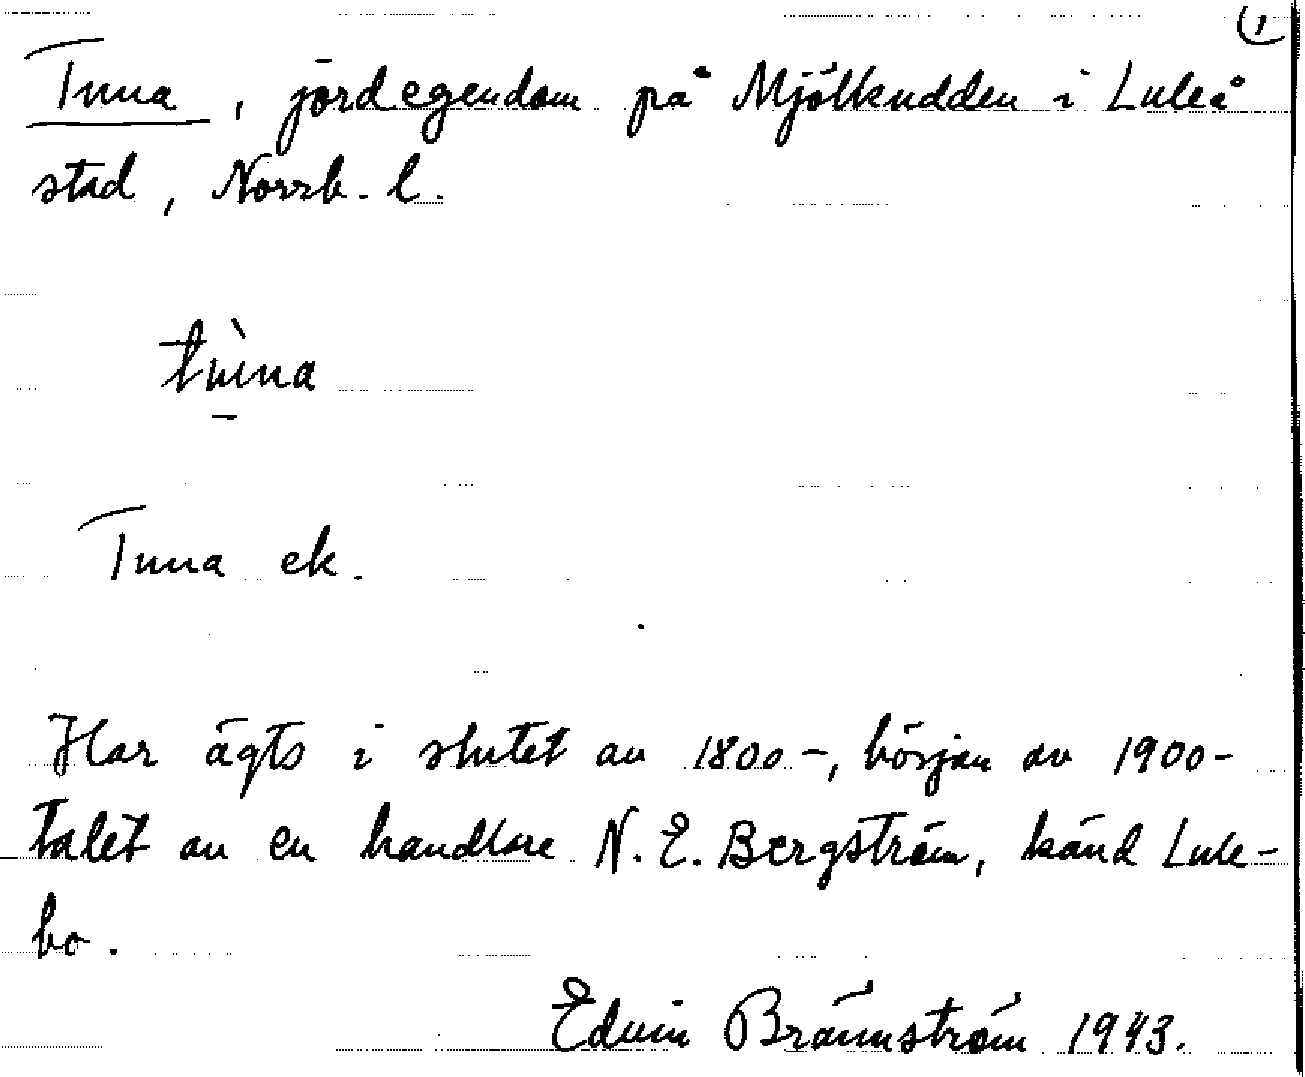 1
Tuna, jordegendom på Mjölkudden i Luleå
stad, Norrb. l.
tùna
Tuna ek.
Har ägts i slutet av 1800-, början av 1900-
talet av en handlare N. E. Bergström, känd Lule-
bo.
Edvin Brännström 1943.